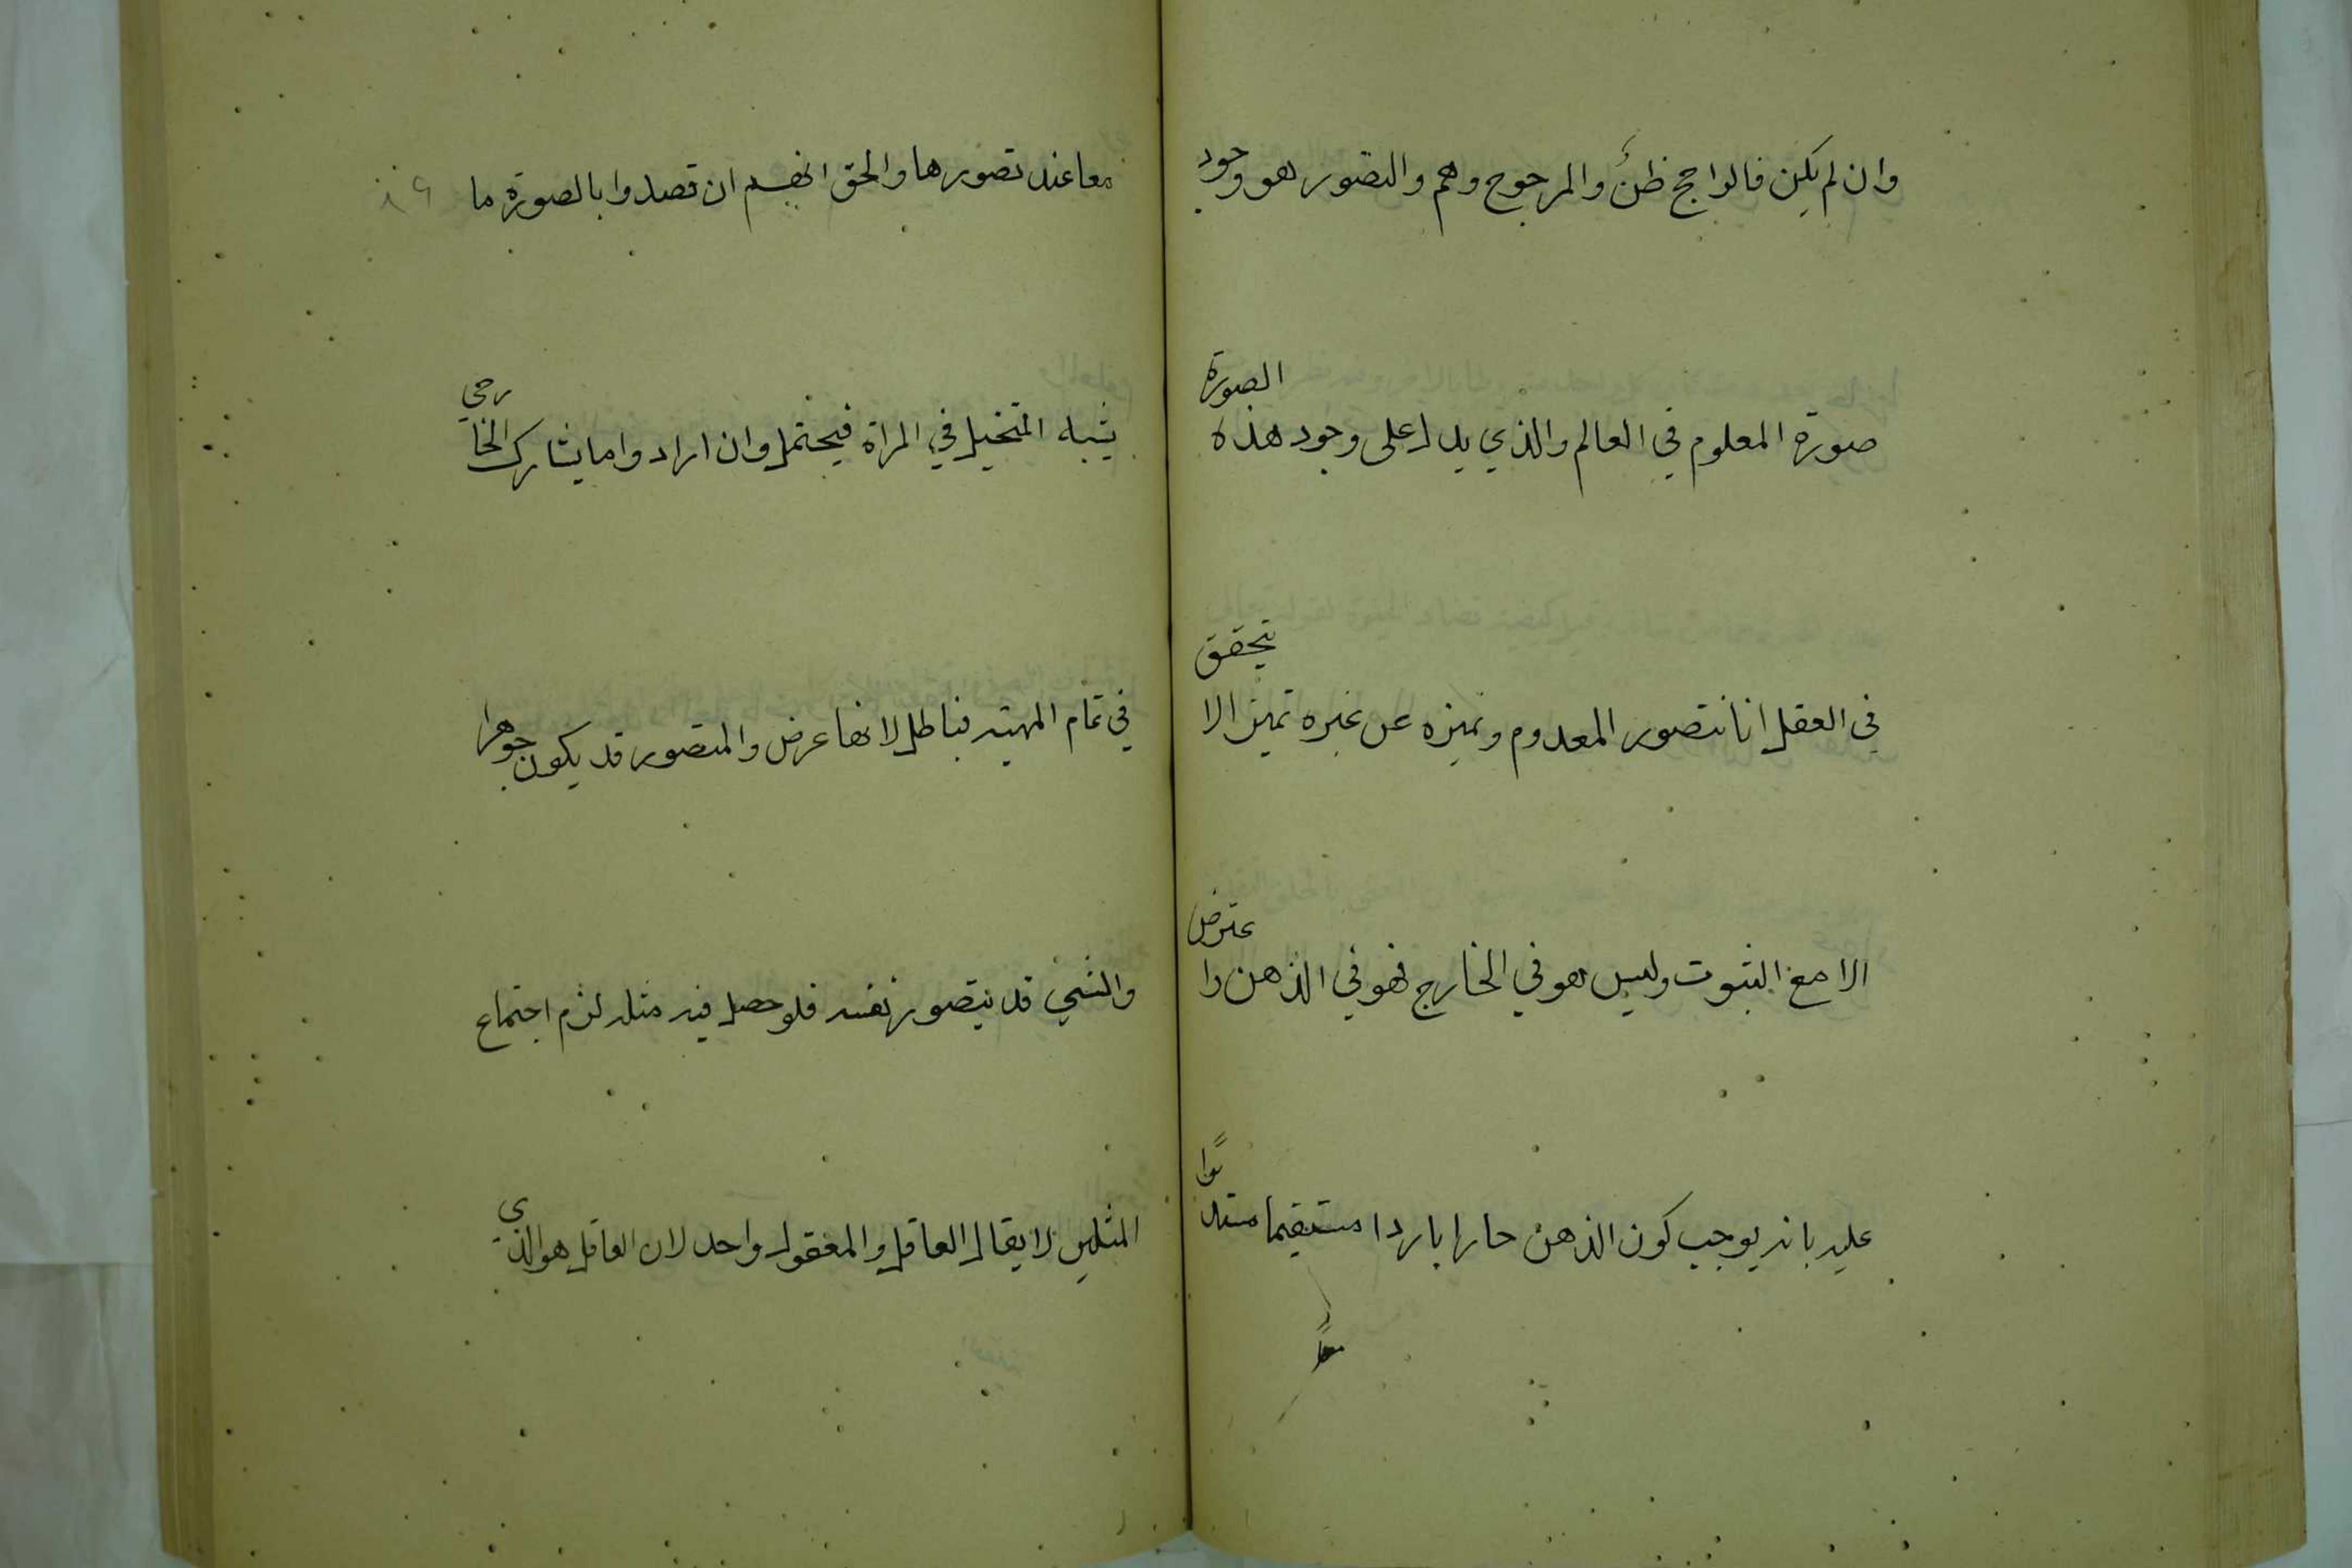 وان لم يكن فالراجح ظن والمرجوح وهم والتصور هو وجود
صورة المعلوم في العالم والذي يدل على وجود هذه الصورة
في العقل انا نتصور المعدوم ونميزه عن غيره تميزا لا يتحقق
الا مع الثبوت وليس هو في الخارج فهو في الذهن واعترض
عليه بانه يوجب كون الذهن حارا باردا مستقيما مستديرا
معا عند تصورها والحق انهم ان قصدوا بالصورة ما
يشبه المتخيل في المراة فيحتمل وان ارادوا ما يشارك الخارجي
في تمام المهية فباطل لانها عرض والمتصور قد يكون جوهرا
والشي قد يتصور نفسه فلو حصل فيه مثله لزم اجتماع
المثلين لا يقال العاقل والمعقول واحد لان العاقل هو الذي